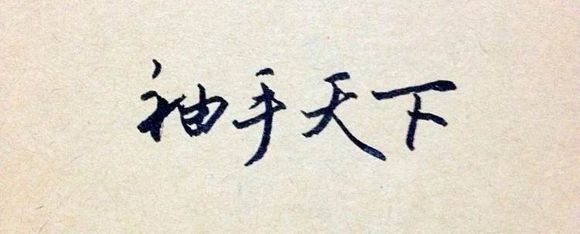 袖手天下